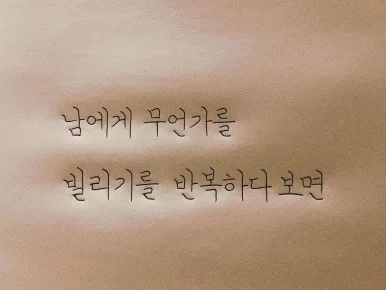 남에게 무언가를
빌리기를 반복하다 보면